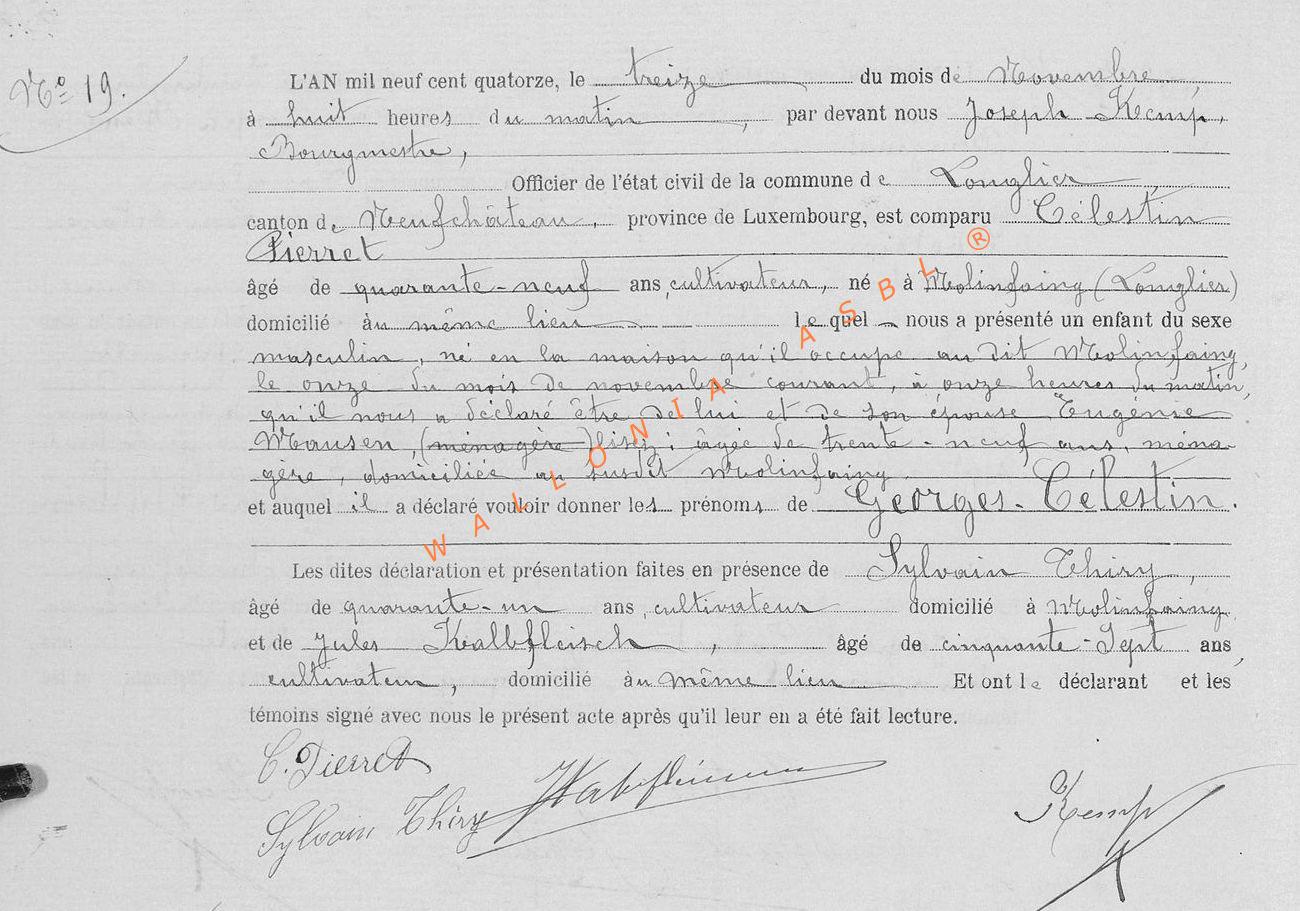 Nº 19.
L'AN mil neuf cent quatorze, le treize du mois de Novembre,
à huit heures du matin, par devant nous Joseph Kemp,
Bourgmestre,
Officier de l'état civil de la commune de Longlier,
canton de Neufchâteau, province de Luxembourg, est comparu Célestin
Pierret
âgé de quarante-neuf ans, cultivateur, né à Molinfaing (Longlier)
domicilié au même lieu lequel nous a présenté un enfant du sexe
masculin, né en la maison qu'il occupe au dit Molinfaing,
le onze du mois de novembre courant, à onze heures du matin,
qu'il nous a déclaré être de lui et de son épouse Eugénie
Mausen, (ménagère) âgée de trente-neuf ans, ména-
gère, domiciliée au susdit Molinfaing
et auquel il a déclaré vouloir donner les prénoms de Georges-Célestin.
Les dites déclaration et présentation faites en présence de Sylvain Thiry,
âgé de quarante-un ans, cultivateur domicilié à Molinfaing
et de Jules Kalbfleisch, âgé de cinquante-Sept ans,
cultivateur, domicilié au même lieu Et ont le déclarant et les
témoins signé avec nous le présent acte après qu'il leur en a été fait lecture.
C. Pierret
Sylvain Thiry
Kemp
WALLONIA ASBL ®